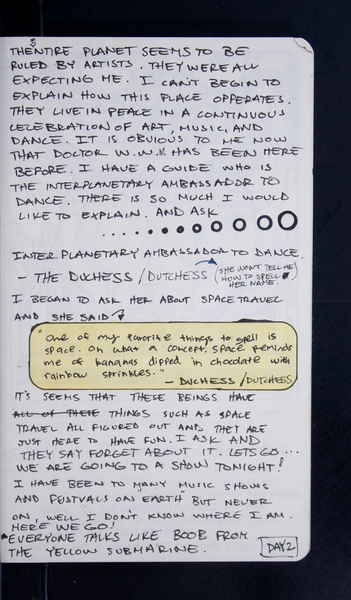 THE ENTIRE PLANET SEEMS TO BE
RULED BY ARTISTS. THEY WERE ALL
EXPECTING ME. I CAN'T BEGIN TO
EXPLAIN HOW THIS PLACE OPPERATES.
THEY LIVE IN PEACE IN A CONTINUOUS
CELEBRATION OF ART, MUSIC, AND
DANCE. IT IS OBVIOUS TO ME NOW
THAT DOCTOR W.W.W. HAS BEEN HERE
BEFORE. I HAVE A GUIDE WHO IS
THE INTERPLANETARY AMBASSADOR TO
DANCE. THERE IS SO MUCH I WOULD
LIKE TO EXPLAIN. AND ASK
INTERPLANETARY AMBASSADOR TO DANCE.
- THE DUCHESS / DUTCHESS (SHE WON'T TELL ME
HOW TO SPELL
HER NAME.)
I BEGAN TO ASK HER ABOUT SPACE TRAVEL
AND SHE SAID
"One of my favorite things to spell is
space. Oh what a concept. Space reminds
me of bananas dipped in chocolate with
rainbow sprinkles."
- DUCHESS / DUTCHESS
IT'S SEEMS THAT THESE BEINGS HAVE
ALL OF THESE THINGS SUCH AS SPACE
TRAVEL ALL FIGURED OUT AND THEY ARE
JUST HERE TO HAVE FUN. I ASK AND
THEY SAY FORGET ABOUT IT. LETS GO...
WE ARE GOING TO A SHOW TONIGHT!
I HAVE BEEN TO MANY MUSIC SHOWS
AND FESTVALS ON EARTH BUT NEVER
ON, WELL I DON'T KNOW WHERE I AM.
HERE WE GO!
EVERYONE TALKS LIKE BOOB FROM
THE YELLOW SUBMARINE.
DAY 2